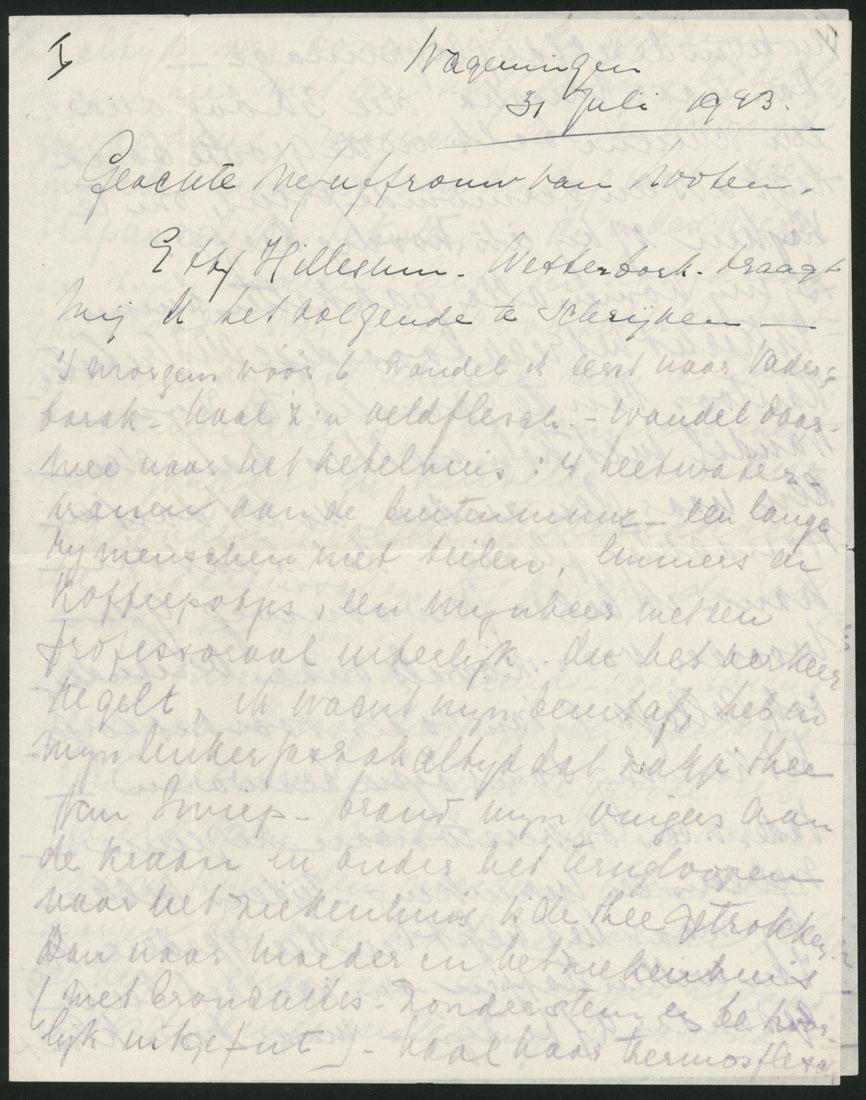 I
Wageningen
31 Juli 1943.
Geachte Mejuffrouw van Nooten,
Etty Hillesum - Westerbork - draagt
mij U het volgende te schrijven —
's morgens vóór 6 wandel ik eerst naar Vaders
barak - haal z'n veldflesch. - Wandel daar-
mee naar het ketelhuis : 4 heetwater-
kranen aan de buitenmuur - een lange
rij menschen met teilen, emmers en
koffiepotjes, een mijnheer met een
professoraal uiterlijk die het verkeer
regelt, ik wacht mijn beurt af, heb in
mijn linker jaszak altijd dat zakje thee
van Swiep - brand mijn vingers aan
de kraan en onder het terugloopen
naar het ziekenhuis is de thee getrokken.
Dan naar moeder in het ziekenhuis
(met bronchitis - zonder stem en behoor-
lijk uitgeput) - haal haar thermosflesch